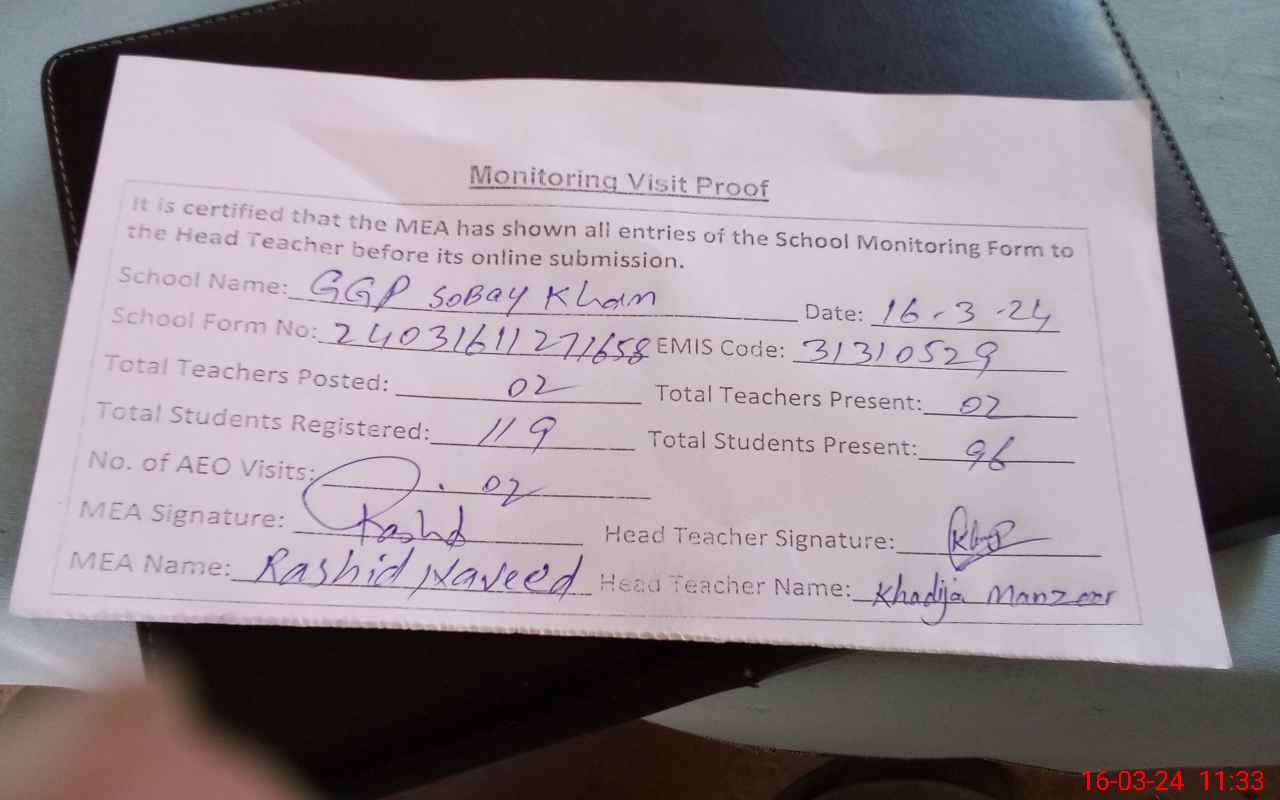 Monitoring Visit Proof
It is certified that the MEA has shown all entries of the School Monitoring Form to
the Head Teacher before its online submission.
School Name: GGP SOBAY Khan Date: 16-3-24
School Form No: 24031611271658 EMIS Code: 31310529
Total Teachers Posted: 02 Total Teachers Present: 02
Total Students Registered: 119 Total Students Present: 96
No. of AEO Visits: 02
MEA Signature: Rashid Head Teacher Signature:
MEA Name: Rashid Naveed Head Teacher Name: Khadija Manzoor
16-03-24 11:33